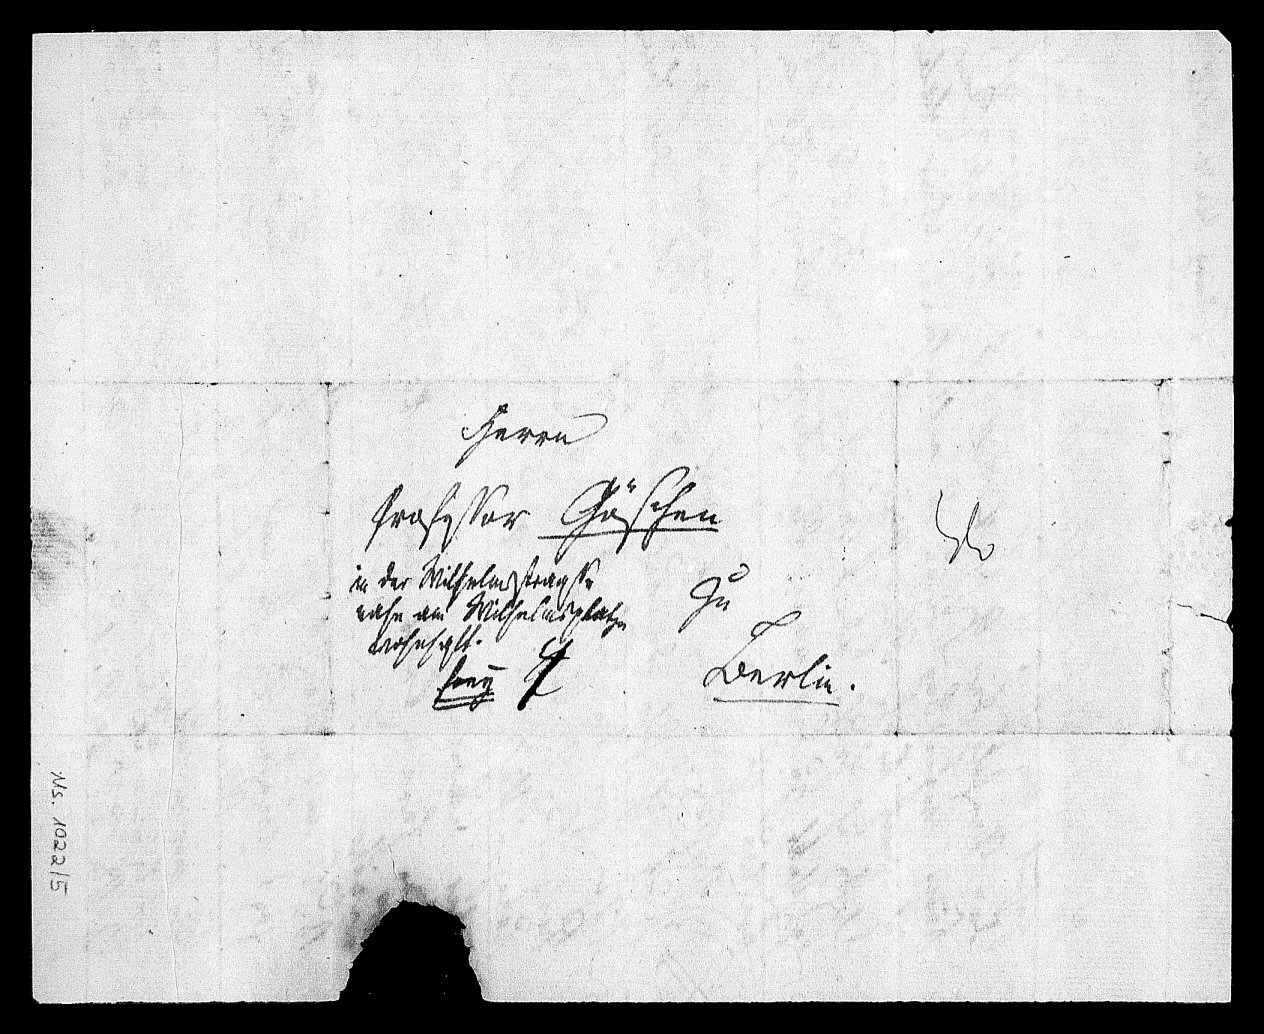 Herrn
Professor Göschen
in der Wilhelmsstraße
nahe am Wilhelmsplatze
wohnhaft.
frey
zu
Berlin.
Ms. 1022/5